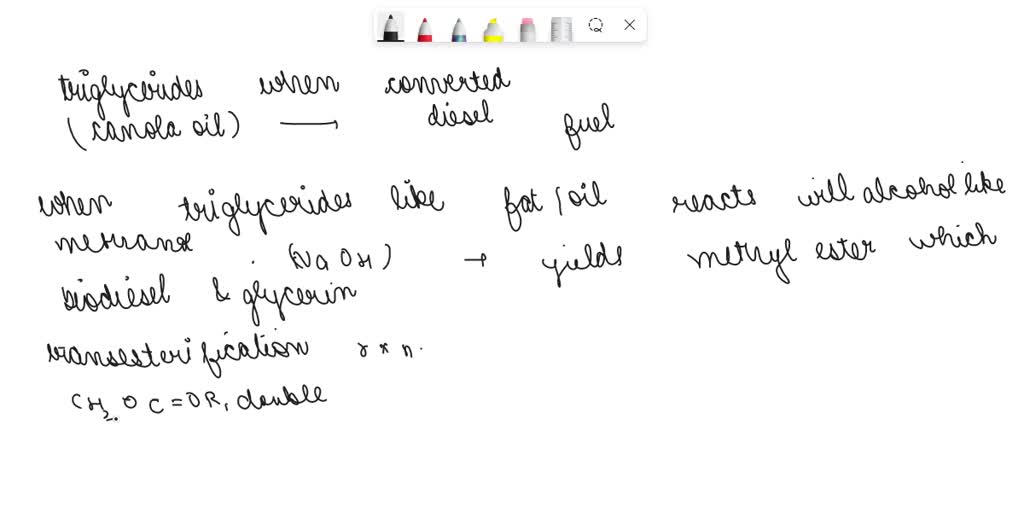 triglycerides when converted
(canola oil) ⟶ diesel fuel
when triglycerides like fat/oil reacts will alcohol like
(NaOH) → yields methyl ester which
biodiesel & glycerin
transesterification rxn.
CH2OC=OR, double